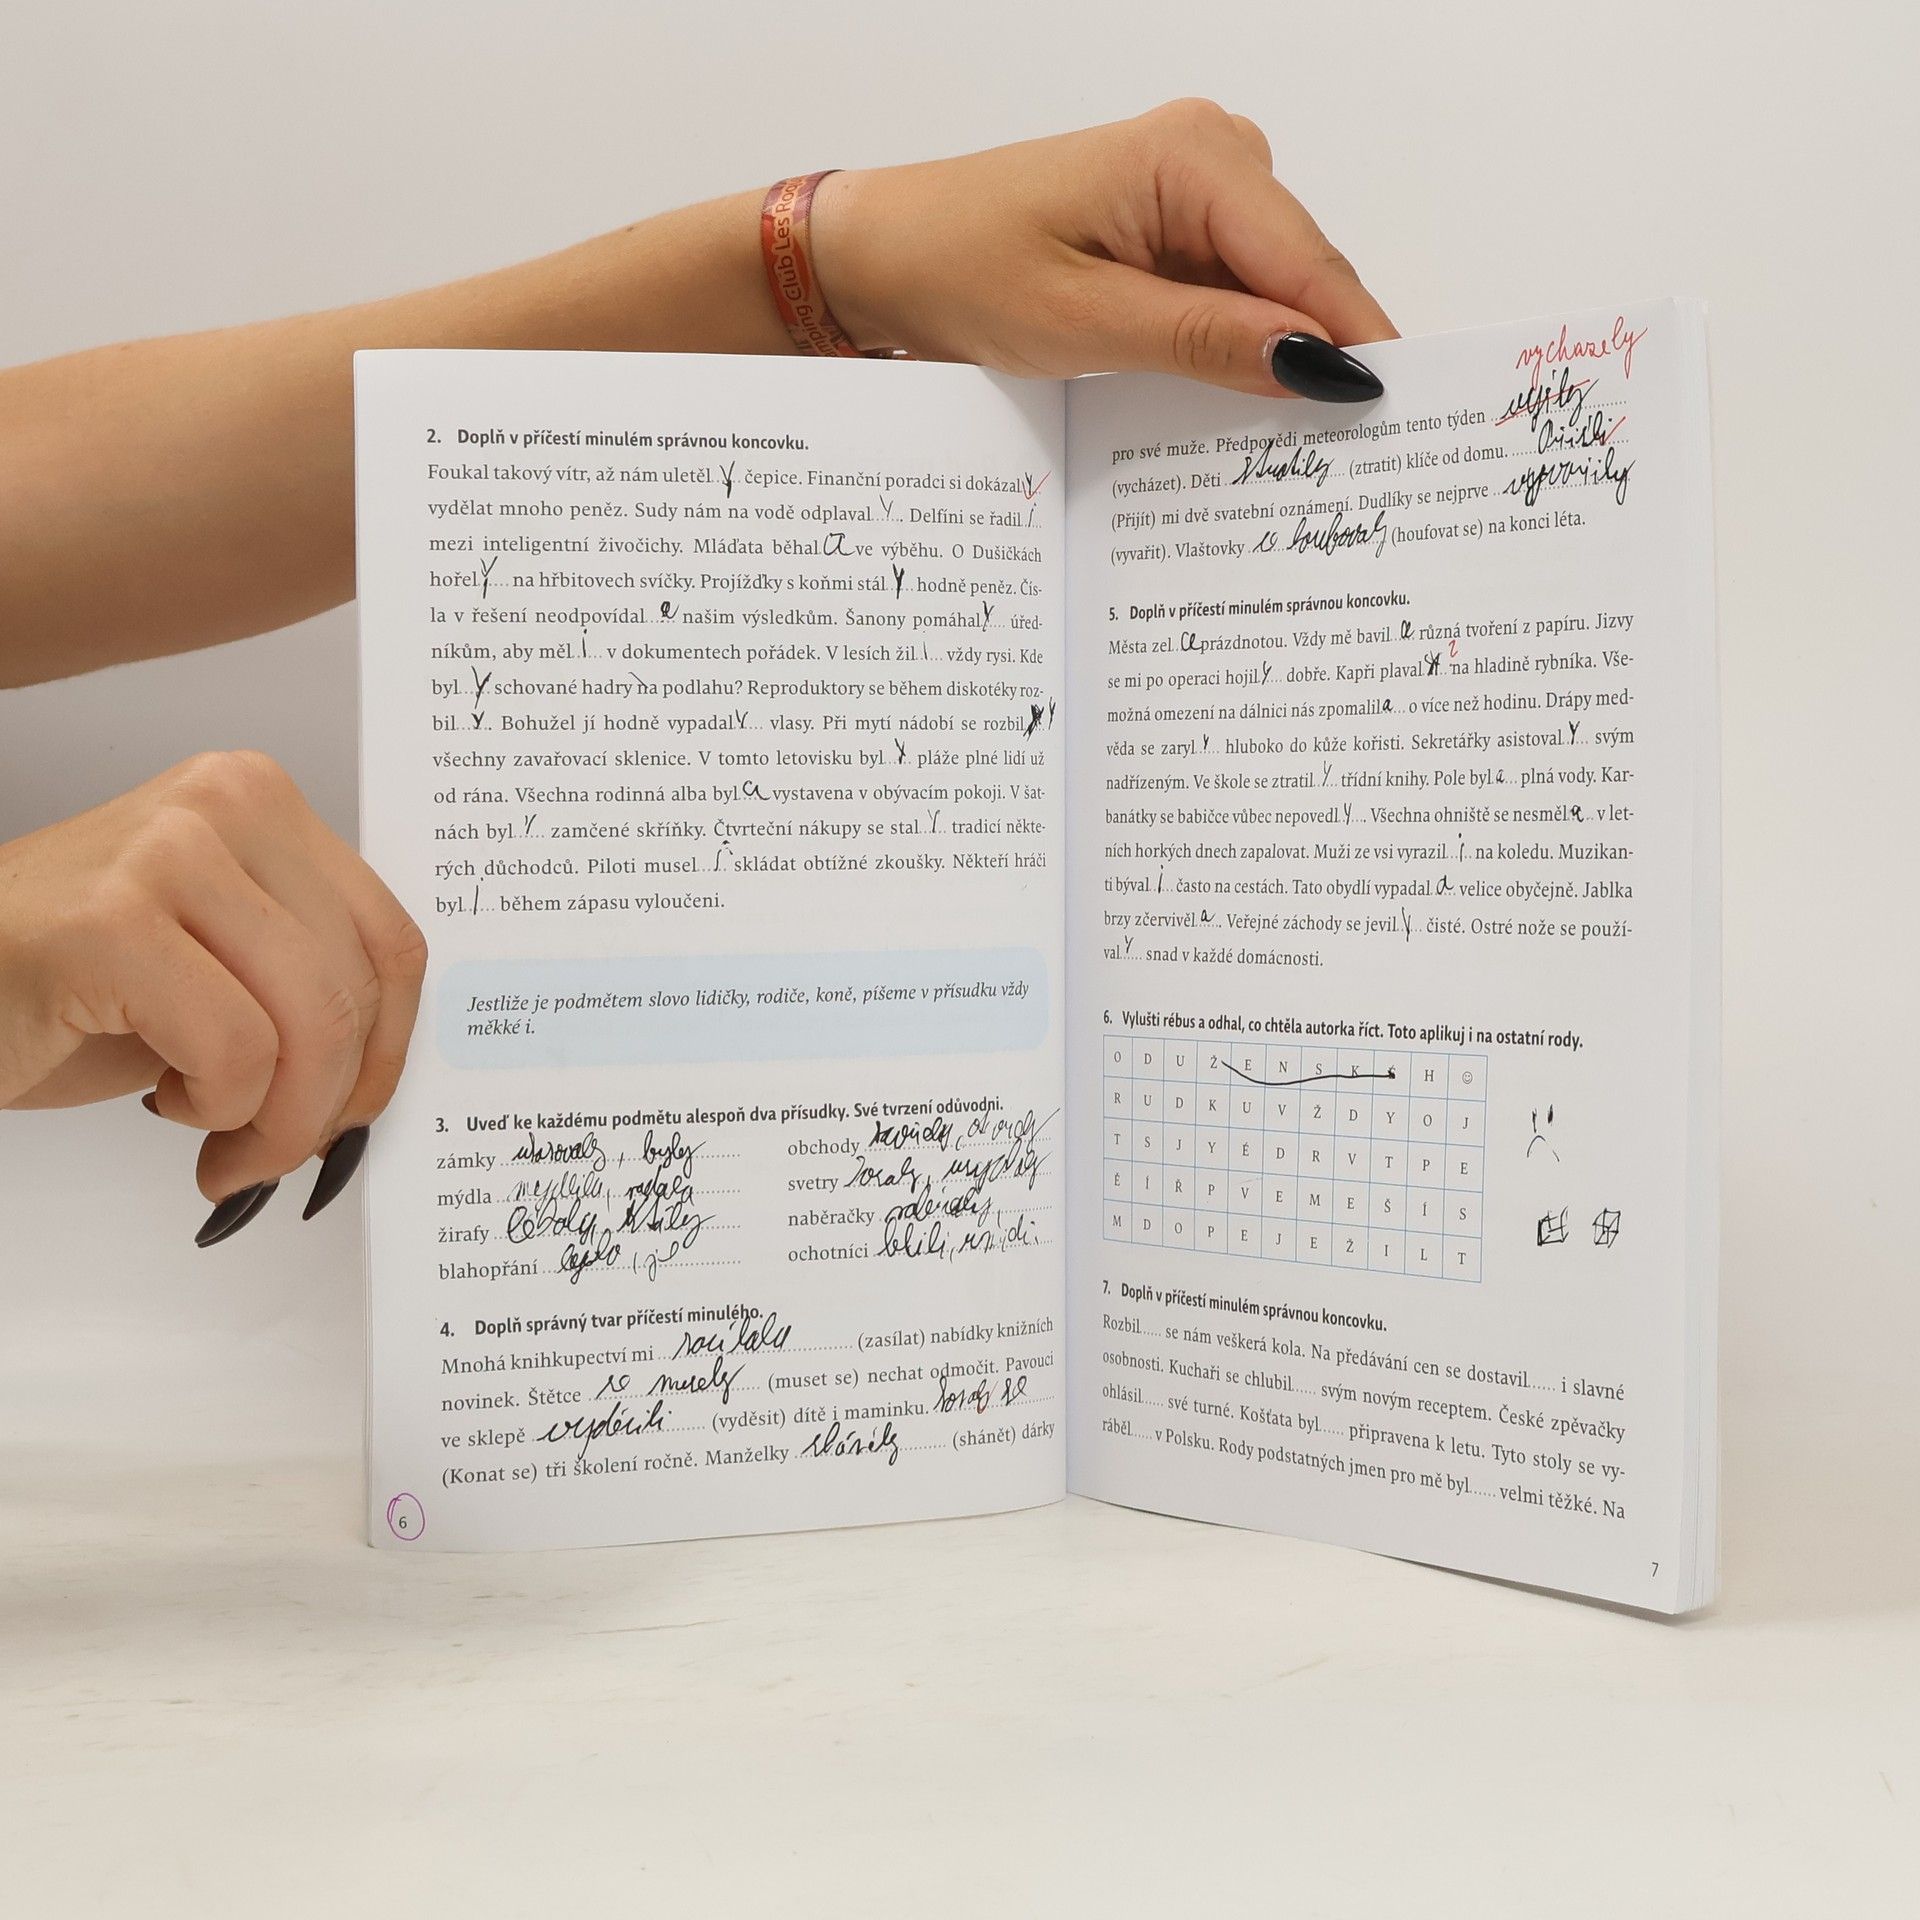 Camping Club Les Roq
2. Doplň v příčestí minulém správnou koncovku.
Foukal takový vítr, až nám uletěl..y čepice. Finanční poradci si dokázal y
vydělat mnoho peněz. Sudy nám na vodě odplaval..y.. Delfíni se řadil.i..
mezi inteligentní živočichy. Mláďata běhal.a ve výběhu. O Dušičkách
hořel y.... na hřbitovech svíčky. Projížďky s koňmi stál.y. hodně peněz. Čís-
la v řešení neodpovídal..a našim výsledkům. Šanony pomáhal.y... úřed-
níkům, aby měl.i... v dokumentech pořádek. V lesích žil.i... vždy rysi. Kde
byl..y. schované hadry na podlahu? Reproduktory se během diskotéky roz-
bil...y.. Bohužel jí hodně vypadal.y... vlasy. Při mytí nádobí se rozbil y
všechny zavařovací sklenice. V tomto letovisku byl..y.. pláže plné lidí už
od rána. Všechna rodinná alba byl.a vystavena v obývacím pokoji. V šat-
nách byl..y... zamčené skříňky. Čtvrteční nákupy se stal..y.. tradicí někte-
rých důchodců. Piloti musel...i. skládat obtížné zkoušky. Někteří hráči
byl..i... během zápasu vyloučeni.
Jestliže je podmětem slovo lidičky, rodiče, koně, píšeme v přísudku vždy
měkké i.
3. Uveď ke každému podmětu alespoň dva přísudky. Své tvrzení odůvodni.
zámky , byly
mýdla
žirafy
blahopřání , je
obchody
svetry
naběračky
ochotníci
4. Doplň správný tvar příčestí minulého.
Mnohá knihkupectví mi (zasílat) nabídky knižních
novinek. Štětce se musely (muset se) nechat odmočit. Pavouci
ve sklepě vyděsili (vyděsit) dítě i maminku.
(Konat se) tři školení ročně. Manželky sháněly (shánět) dárky
6
vychazely
pro své muže. Předpovědi meteorologům tento týden
(vycházet). Děti ztratily (ztratit) klíče od domu.
(Přijít) mi dvě svatební oznámení. Dudlíky se nejprve
(vyvařit). Vlaštovky (houfovat se) na konci léta.
5. Doplň v příčestí minulém správnou koncovku.
Města zel..a prázdnotou. Vždy mě bavil..a. různá tvoření z papíru. Jizvy
se mi po operaci hojil.y... dobře. Kapři plaval na hladině rybníka. Vše-
možná omezení na dálnici nás zpomalil.a... o více než hodinu. Drápy med-
věda se zaryl..y... hluboko do kůže kořisti. Sekretářky asistoval.y... svým
nadřízeným. Ve škole se ztratil..y... třídní knihy. Pole byl.a... plná vody. Kar-
banátky se babičce vůbec nepovedl.y... Všechna ohniště se nesměl.a.. v let-
ních horkých dnech zapalovat. Muži ze vsi vyrazil...i.. na koledu. Muzikan-
ti býval.i... často na cestách. Tato obydlí vypadal.a.. velice obyčejně. Jablka
brzy zčervivěl.a... Veřejné záchody se jevil.y.. čisté. Ostré nože se použí-
val.y... snad v každé domácnosti.
6. Vylušti rébus a odhal, co chtěla autorka říct. Toto aplikuj i na ostatní rody.
O D U Ž E N S K É H ☺
R U D K U V Ž D Y O J
T S J Y É D R V T P E
É Í Ř P V E M E Š Í S
M D O P E J E Ž I L T
7. Doplň v příčestí minulém správnou koncovku.
Rozbil..... se nám veškerá kola. Na předávání cen se dostavil...... i slavné
osobnosti. Kuchaři se chlubil...... svým novým receptem. České zpěvačky
ohlásil...... své turné. Košťata byl...... připravena k letu. Tyto stoly se vy-
ráběl..... v Polsku. Rody podstatných jmen pro mě byl...... velmi těžké. Na
7